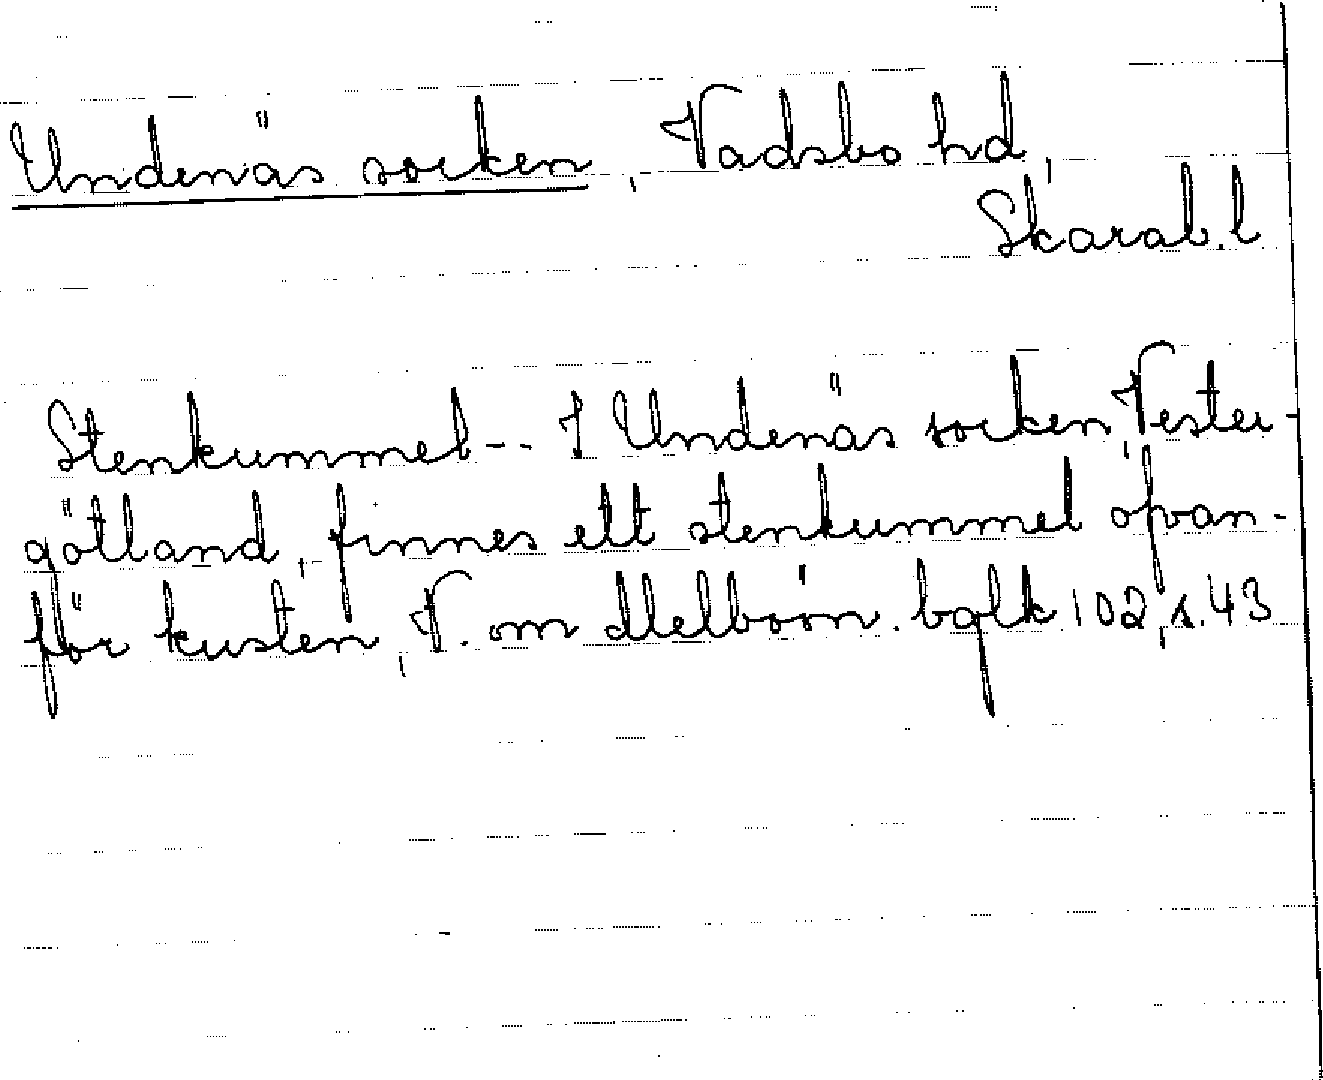 Undenäs socken, Vadsbo hd,
Skarab. l
Stenkummel-- I Undenäs socken, Vester-
götland, finnes ett stenkummel ofvan-
för kusten, V. om Melbohn. bglk 102, s. 43